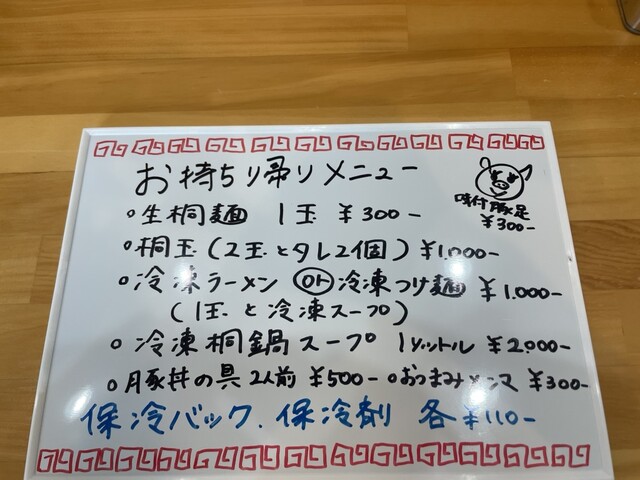 お持ち帰りメニュー
味付豚足
¥300-
○生桐麺 1玉 ¥300-
○桐玉(2玉とタレ2個) ¥1,000-
○冷凍ラーメン or 冷凍つけ麺 ¥1,000-
(1玉と冷凍スープ)
○冷凍桐鍋スープ 1リットル ¥2,000-
○豚丼の具 2人前 ¥500- ○おつまみメンマ ¥300-
保冷バック、保冷剤 各¥110-